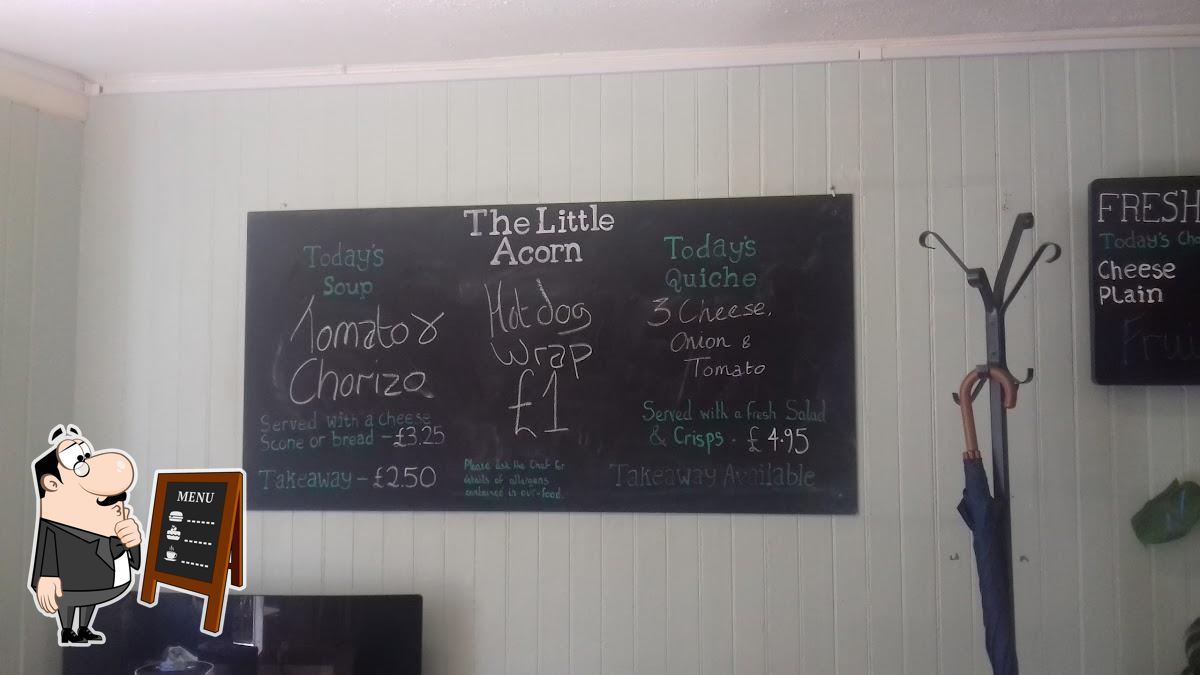 The Little
Acorn
Today's
Soup
Tomato &
Chorizo
Served with a cheese
Scone or bread - £3.25
Takeaway - £2.50
Hot dog
wrap
£1
Please ask the Chef for
details of allergens
contained in our food.
Today's
Quiche
3 Cheese,
Onion &
Tomato
Served with a fresh Salad
& Crisps - £4.95
Takeaway Available
FRESH
Today's
Cheese
Plain
Frui
MENU